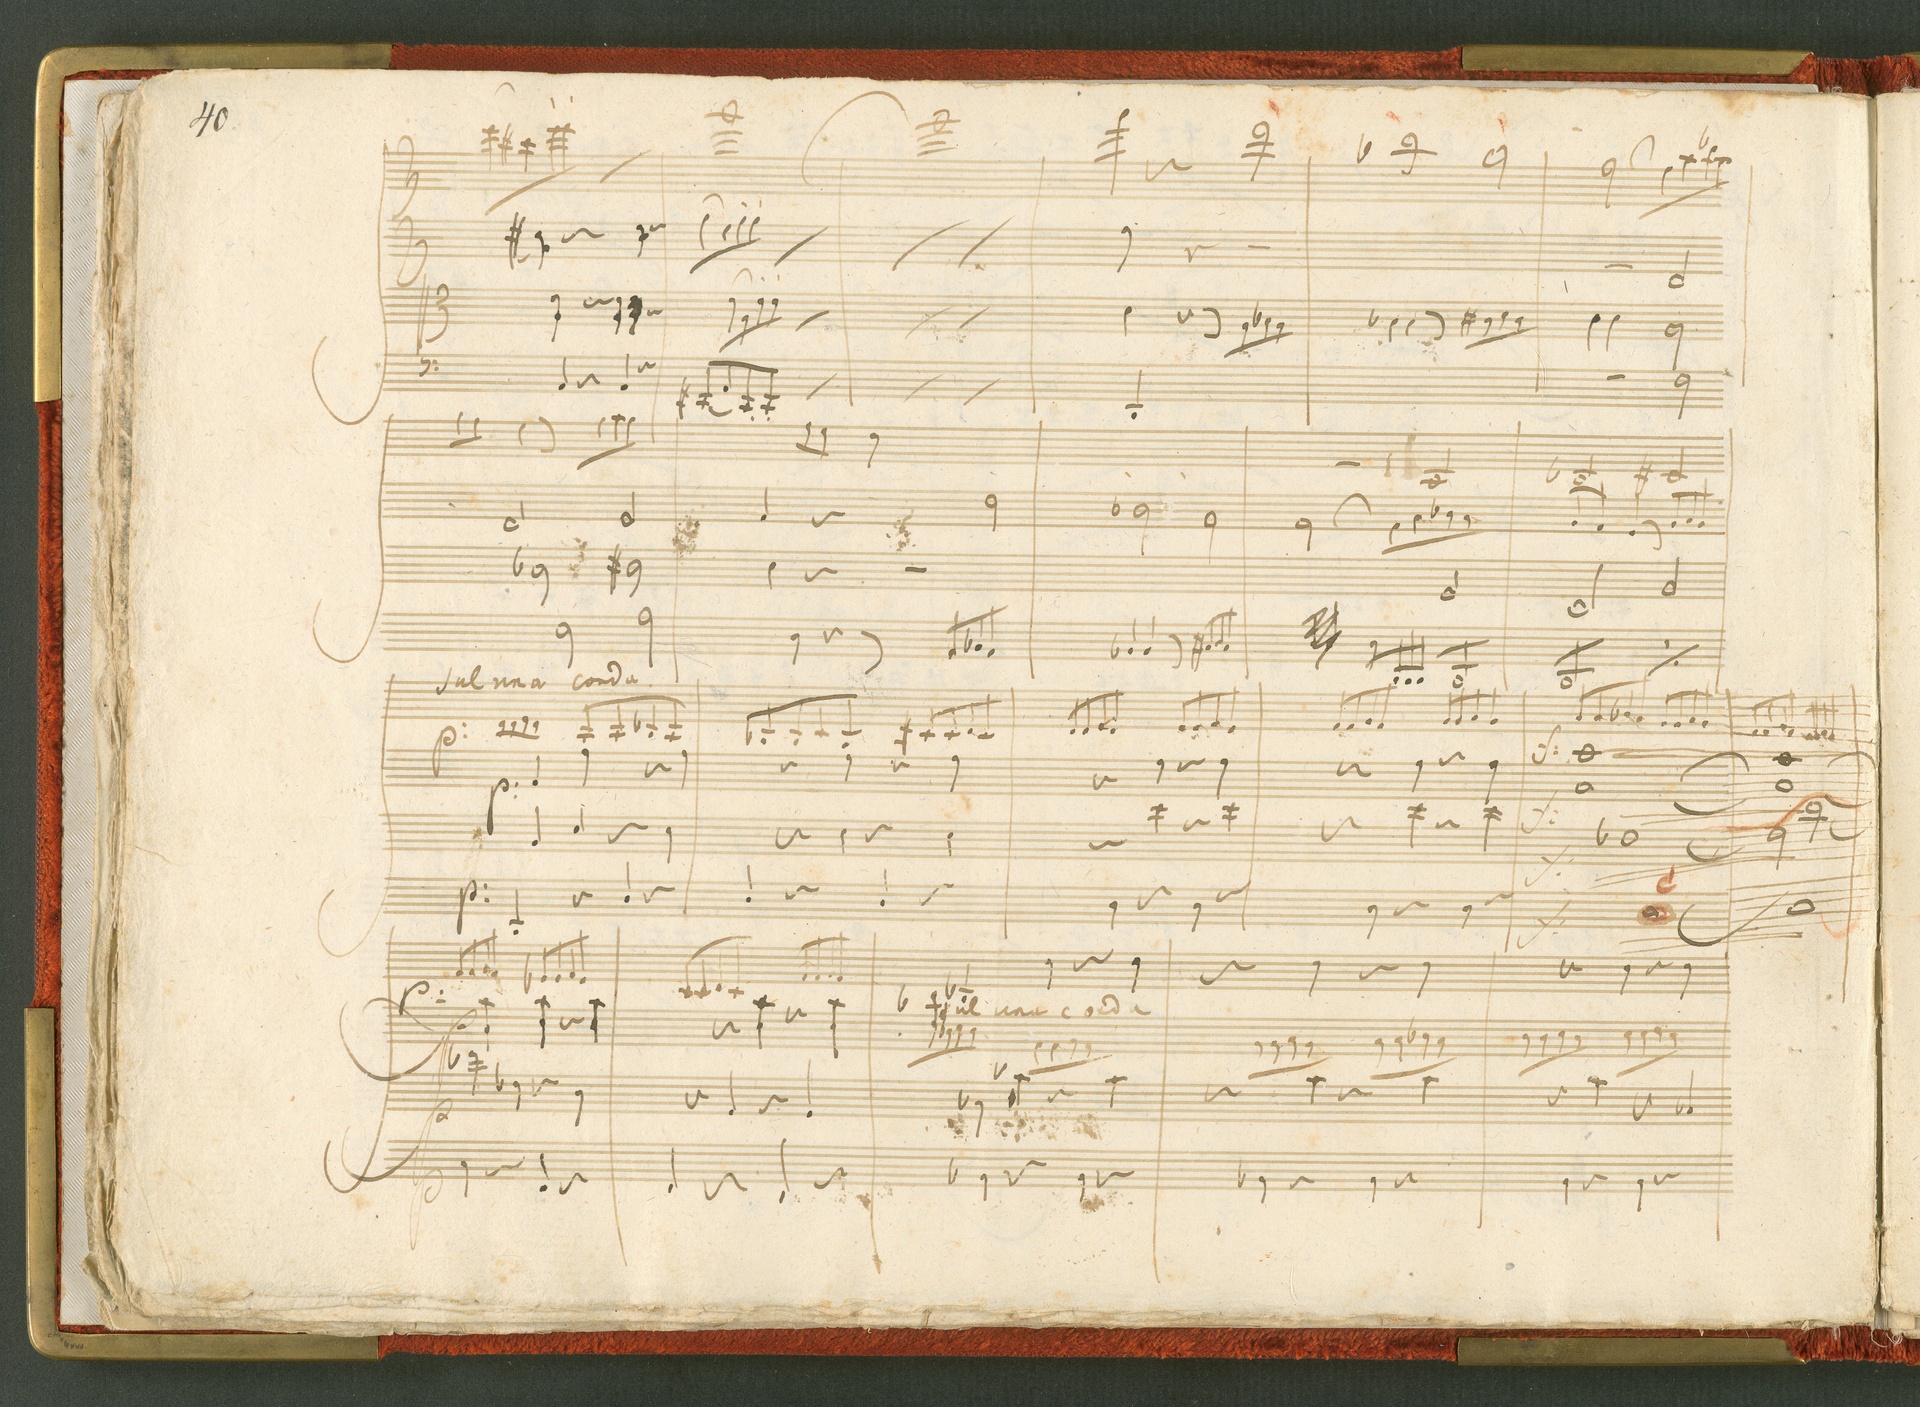 40
Sul una corda
p:
p:
p:
p:
Sul una corda